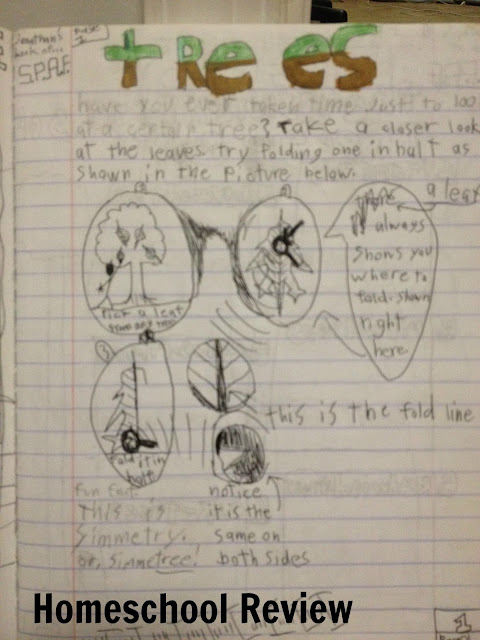 Jonathan's
book of
S.P.A.F.
Page
1
trees
have you ever taken time just to loo
at a certain tree? Take a closer look
at the leaves. try folding one in half as
shown in the picture below.
pick a leaf
from any tree
a leaf
always
shows you
where to
fold. shown
right
here.
3
fold it in
half
this is the fold line
fun fact.
This is
simmetry.
or, simmetree!
notice
it is the
same on
both sides
1
Homeschool Review